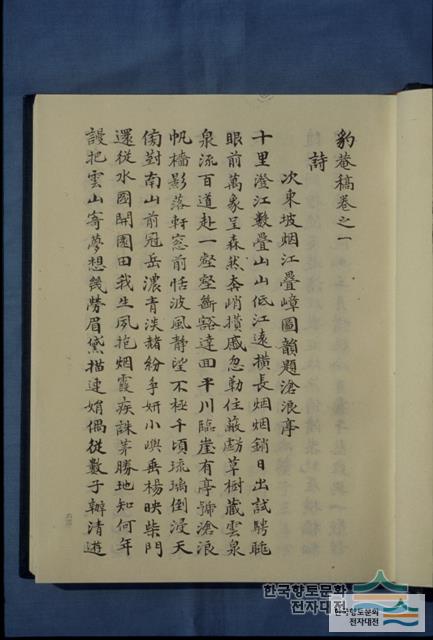 豹菴稿卷之一
詩
次東坡烟江疊嶂圖韻題滄浪亭
十里澄江數疊山山低江遠橫長烟烟銷日出試騁眺
眼前萬象呈森然奔峭攢蹙忽勒住蔽虧草樹藏雲泉
泉流百道赴一壑壑斷谿達回平川臨崖有亭號滄浪
帆檣影落軒窓前恬波風靜望不極千頃琉璃倒浸天
傍對南山前冠岳濃青淡赭紛乎妍小嶼垂楊映柴門
還從水國開園田我生夙抱烟霞疾誅茅勝地知何年
謾把雲山寄夢想幾勞眉黛描連娟偶從數子辦清遊
한국향토문화
전자대전
한국향토문화
전자대전